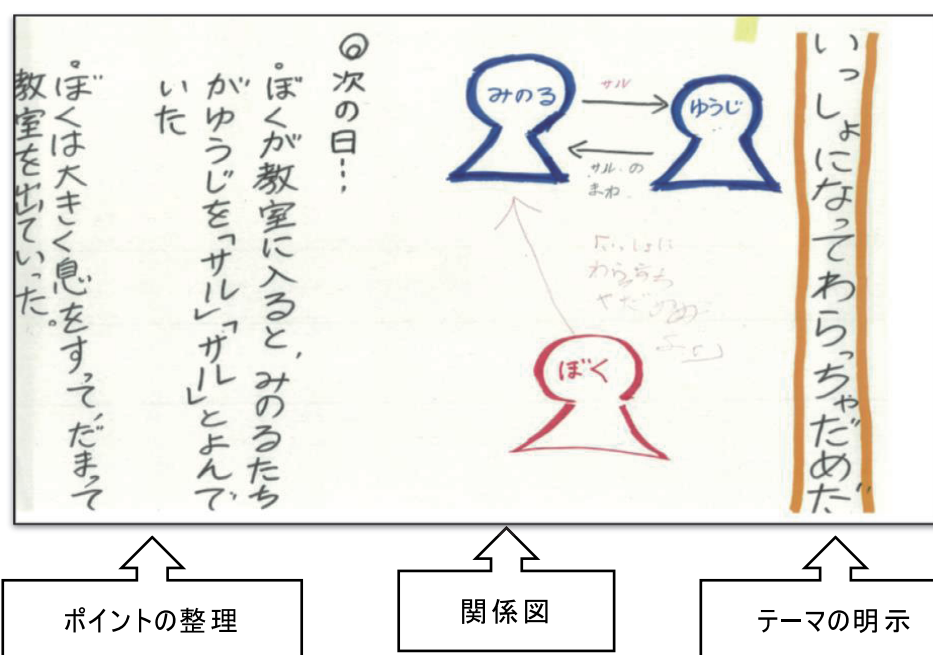 いっしょになってわらっちゃだめだ
ゆうじ
みのる
サル
サルの
まね
ぼく
◎次の日…、
・ぼくが教室に入ると、みのるたち
がゆうじを「サル」「サル」とよんで
いた
・ぼくは大きく息をすって、だまって
教室を出ていった。
ポイントの整理
関係図
テーマの明示